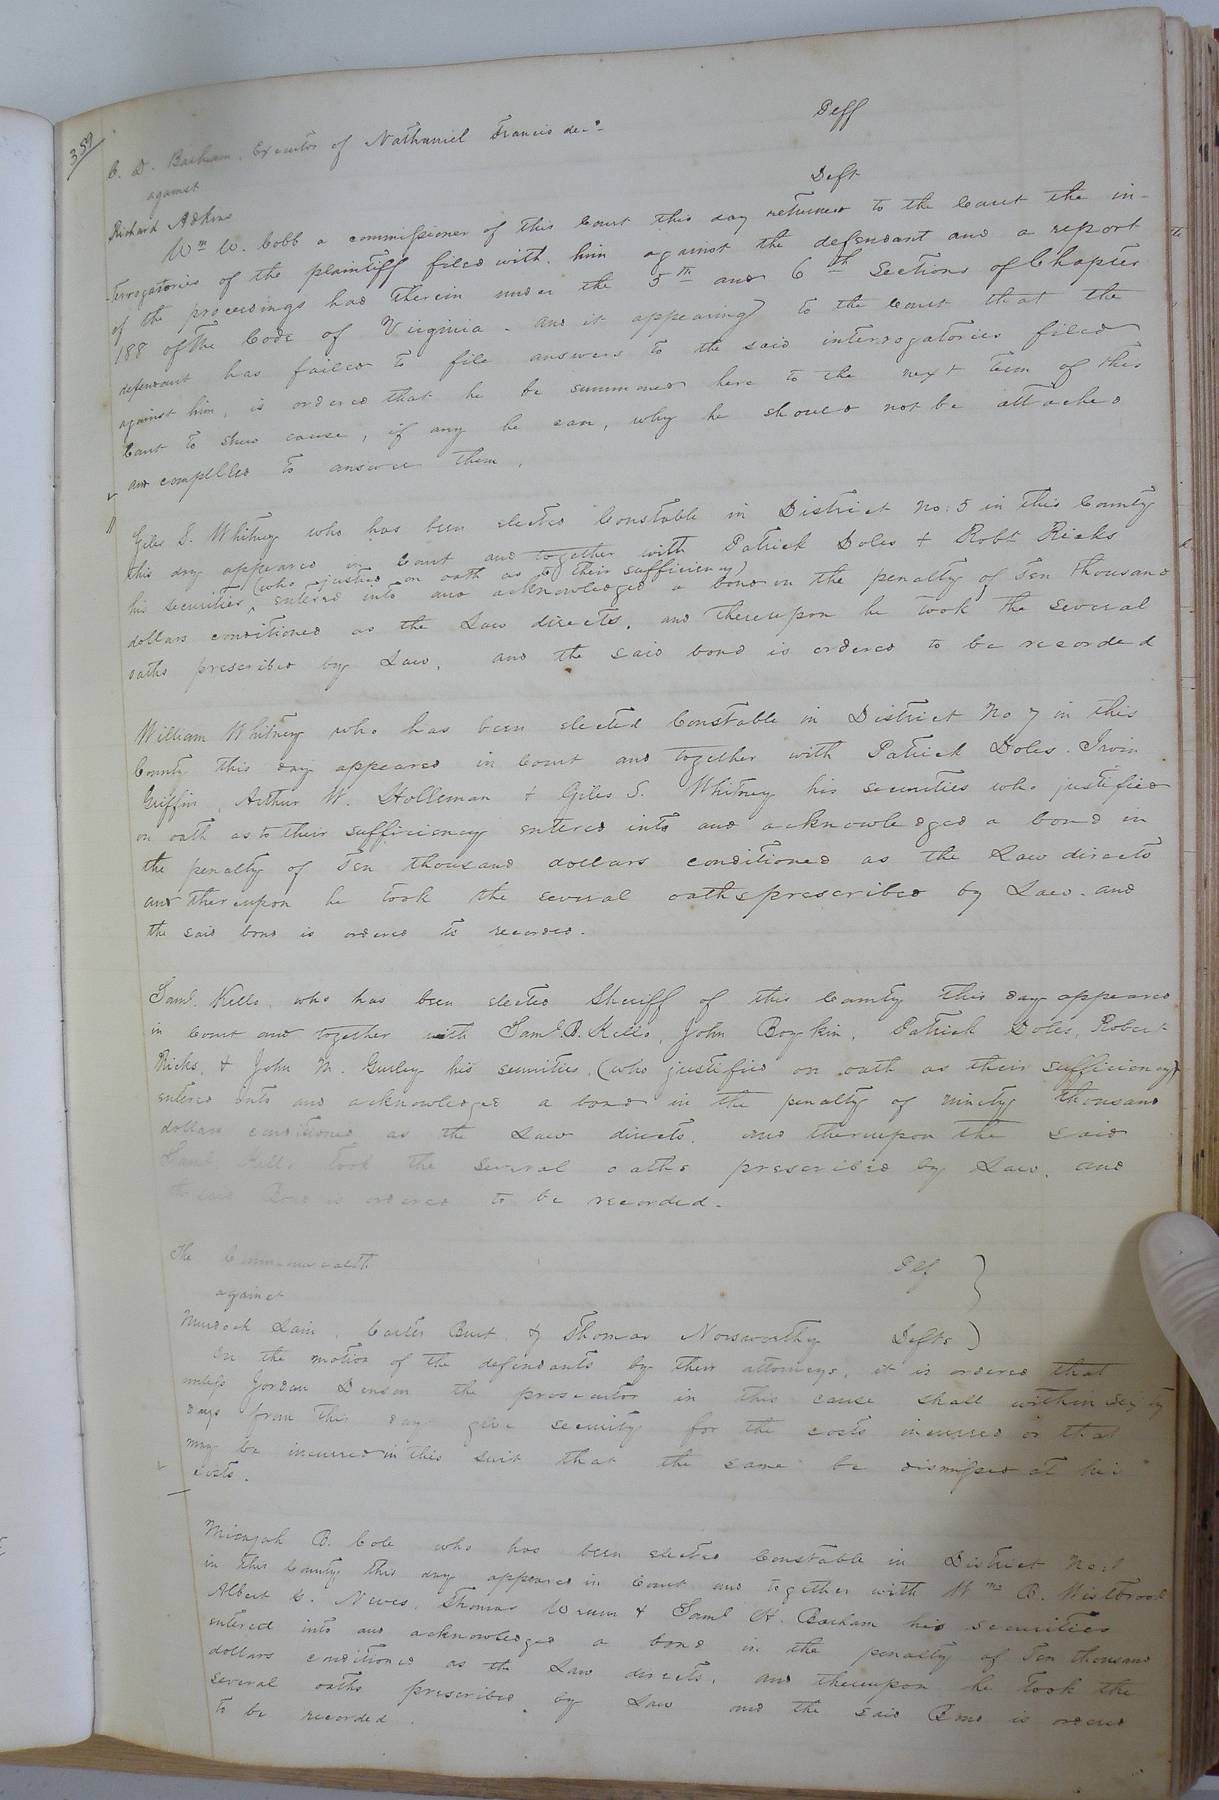 359
C. D. Barham, Executor of Nathaniel Francis decd. Peff
against
Richard Adkins Deft
Wm W. Cobb a commissioner of this Court this day returned to the Court the in-
-terrogatories of the plaintiff filed with him against the defendant and a report
of the proceedings had therein under the 5th and 6th Sections of Chapter
188 of the Code of Virginia - and it appearing to the Court that the
defendant has failed to file answers to the said interrogatories filed
against him, is ordered that he be summoned here to the next term of this
Court to shew cause, if any he can, why he should not be attached
and compelled to answer them.
Giles S. Whitney who has been elected Constable in District No. 5 in this County
this day appeared in Court and together with Patrick Doles & Robt Ricks
his securities (who justified on oath as to their sufficiency) entered into and acknowledged a bond in the penalty of Ten thousand
dollars conditioned as the Law directs. and thereupon he took the several
oaths prescribed by Law. and the said bond is ordered to be recorded
William Whitney who has been elected Constable in District No 7 in this
County this day appeared in Court and together with Patrick Doles. Irvin
Griffin, Arthur W. Holleman & Giles S. Whitney his securities who justified
on oath as to their sufficiency entered into and acknowledged a bond in
the penalty of Ten thousand dollars conditioned as the Law directs
and thereupon he took the several oaths prescribed by Law. and
the said bond is ordered to recorded.
Saml. Kello, who has been elected Sheriff of this County this day appeared
in Court and together with Saml B. Kello, John Boykin, Patrick Doles, Robert
Ricks, & John M. Gurley his securities, (who justified on oath as their sufficiency)
entered into and acknowledged a bond in the penalty of ninety thousand
dollars conditioned as the Law directs. and thereupon the said
Saml. Kello took the several oaths prescribed by Law. and
the said Bond is ordered to be recorded.
The Commonwealth Plf
against
Murdock Lain, Carter Burt & Thomas Norsworthy Defts
On the motion of the defendants by their attorneys, it is ordered that
unless Jordan Denson the prosecutor in this cause shall within sixty
days from this day give security for the costs incurred or that
may be incurred in this suit that the same be dismissed at his
costs.
Micajah B. Cole who has been elected Constable in District No. 1
in this County this day appeared in Court and together with Wm B. Westbrook
Albert G. Neves, Thomas Wrenn & Saml H. Barham his securities
entered into and acknowledged a bond in the penalty of Ten thousand
dollars conditioned as the Law directs, and thereupon he took the
several oaths prescribed by Law and the said Bond is ordered
to be recorded.